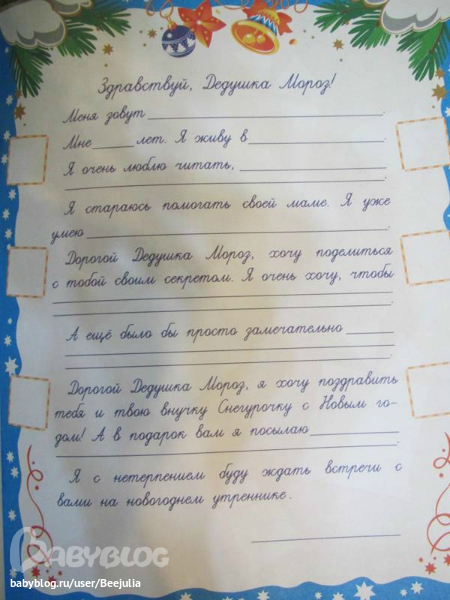 Здравствуй, Дедушка Мороз!
Меня зовут
Мне лет. Я живу в
Я очень люблю читать,
Я стараюсь помогать своей маме. Я уже
умею
Дорогой Дедушка Мороз, хочу поделиться
с тобой своим секретом. Я очень хочу, чтобы
А ещё было бы просто замечательно
Дорогой Дедушка Мороз, я хочу поздравить
тебя и твою внучку Снегурочку с Новым го-
дом! А в подарок вам я посылаю
Я с нетерпением буду ждать встречи с
вами на новогоднем утреннике.
BABYBLOG
babyblog.ru/user/Beejulia